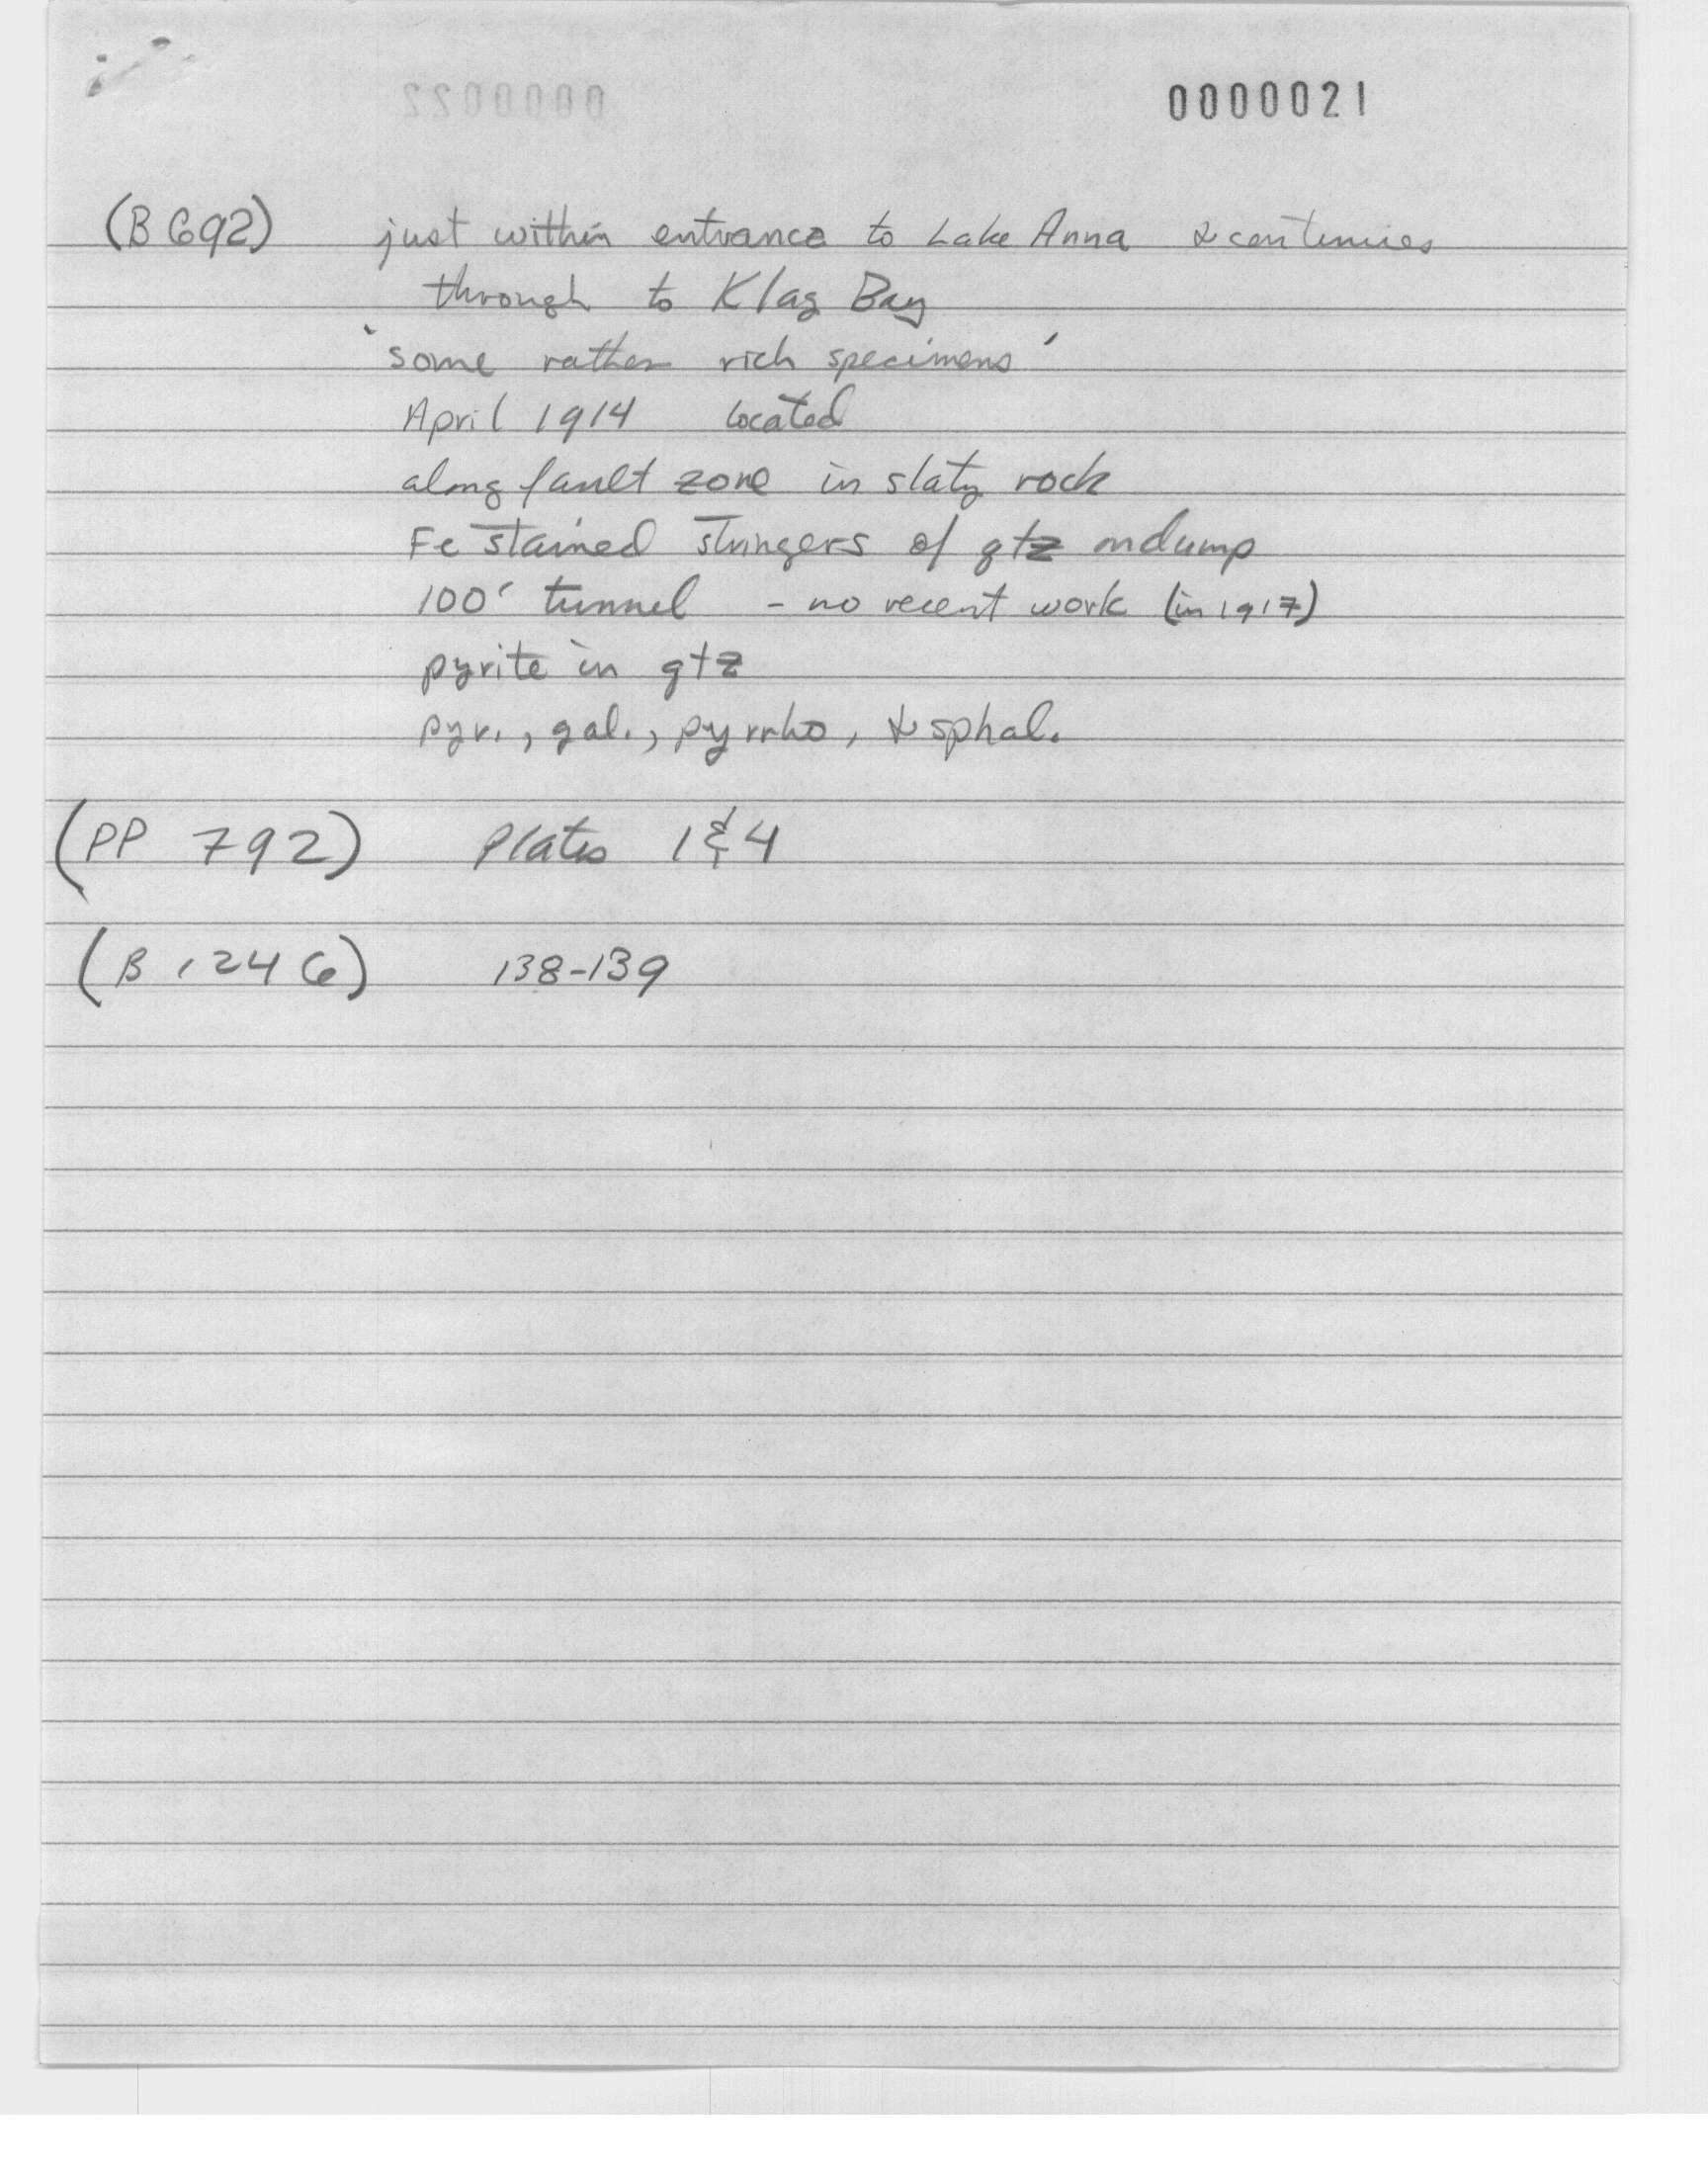 0000022
0000021
(B 692) just within entrance to Lake Anna & continues
through to Klag Bay
'some rather rich specimens'
April 1914 located
along fault zone in slaty rock
Fe stained stringers of qtz on dump
100' tunnel - no recent work (in 1917)
pyrite in qtz
pyr., gal., pyrrho, & sphal.
(PP 792) Plates 1 & 4
(B 1246) 138-139